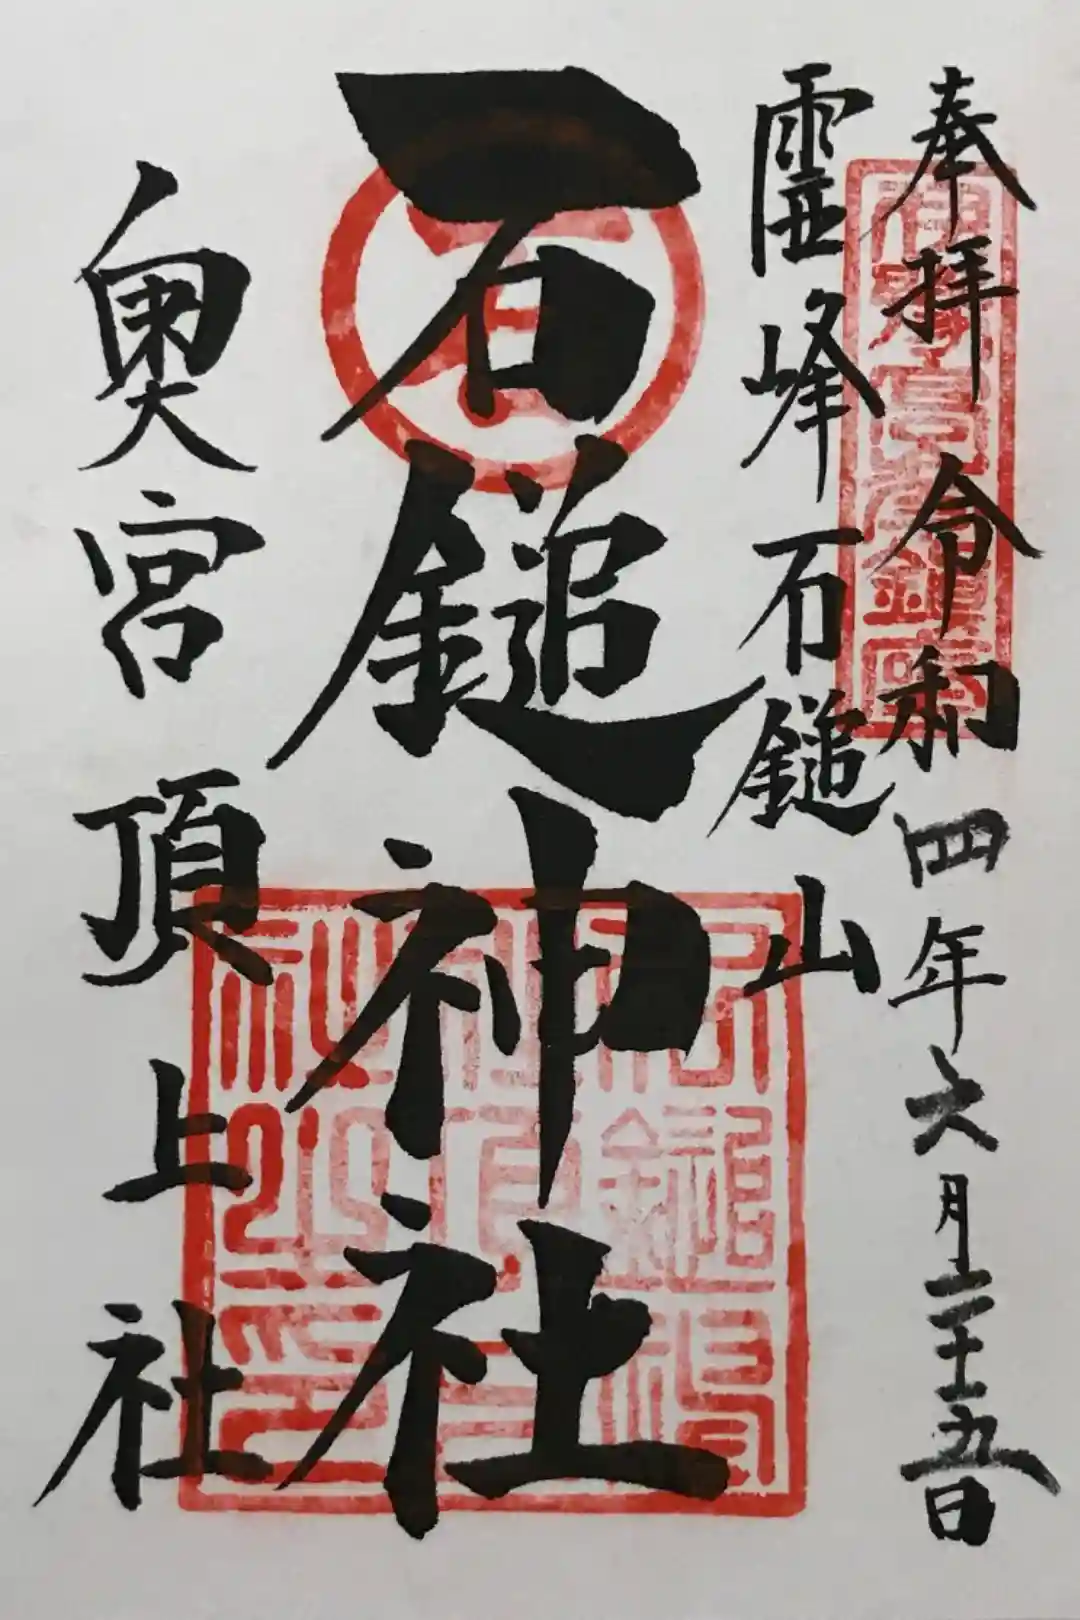 奉拝 令和四年六月二十九日
霊峰石鎚山
石鎚神社
奥宮頂上社